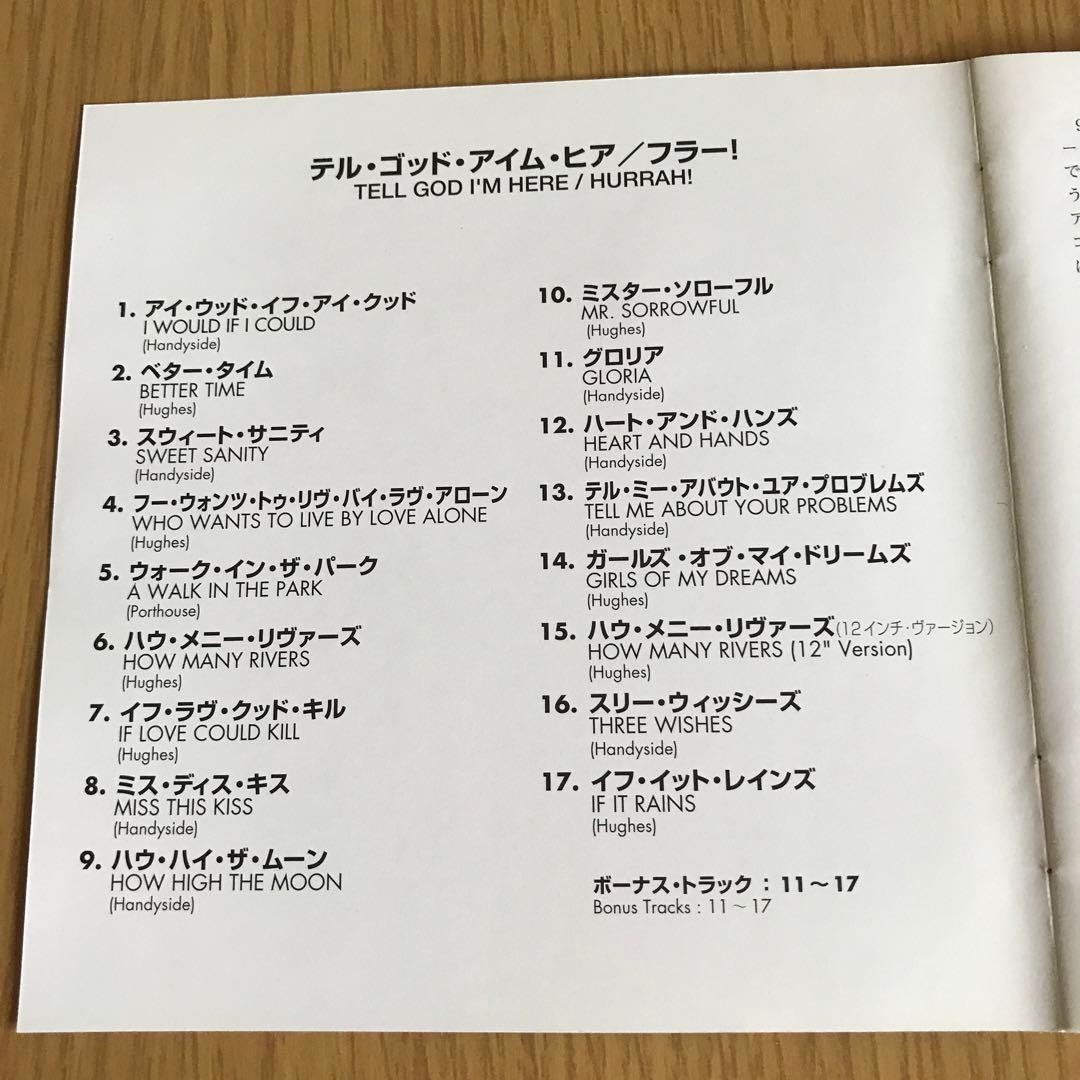 テル・ゴッド・アイム・ヒア／フラー!
TELL GOD I'M HERE / HURRAH!
1. アイ・ウッド・イフ・アイ・クッド
I WOULD IF I COULD
(Handyside)
2. ベター・タイム
BETTER TIME
(Hughes)
3. スウィート・サニティ
SWEET SANITY
(Handyside)
4. フー・ウォンツ・トゥ・リヴ・バイ・ラヴ・アローン
WHO WANTS TO LIVE BY LOVE ALONE
(Hughes)
5. ウォーク・イン・ザ・パーク
A WALK IN THE PARK
(Porthouse)
6. ハウ・メニー・リヴァーズ
HOW MANY RIVERS
(Hughes)
7. イフ・ラヴ・クッド・キル
IF LOVE COULD KILL
(Hughes)
8. ミス・ディス・キス
MISS THIS KISS
(Handyside)
9. ハウ・ハイ・ザ・ムーン
HOW HIGH THE MOON
(Handyside)
10. ミスター・ソローフル
MR. SORROWFUL
(Hughes)
11. グロリア
GLORIA
(Handyside)
12. ハート・アンド・ハンズ
HEART AND HANDS
(Handyside)
13. テル・ミー・アバウト・ユア・プロブレムズ
TELL ME ABOUT YOUR PROBLEMS
(Handyside)
14. ガールズ・オブ・マイ・ドリームズ
GIRLS OF MY DREAMS
(Hughes)
15. ハウ・メニー・リヴァーズ(12インチ・ヴァージョン)
HOW MANY RIVERS (12" Version)
(Hughes)
16. スリー・ウィッシーズ
THREE WISHES
(Handyside)
17. イフ・イット・レインズ
IF IT RAINS
(Hughes)
ボーナス・トラック：11～17
Bonus Tracks : 11～17